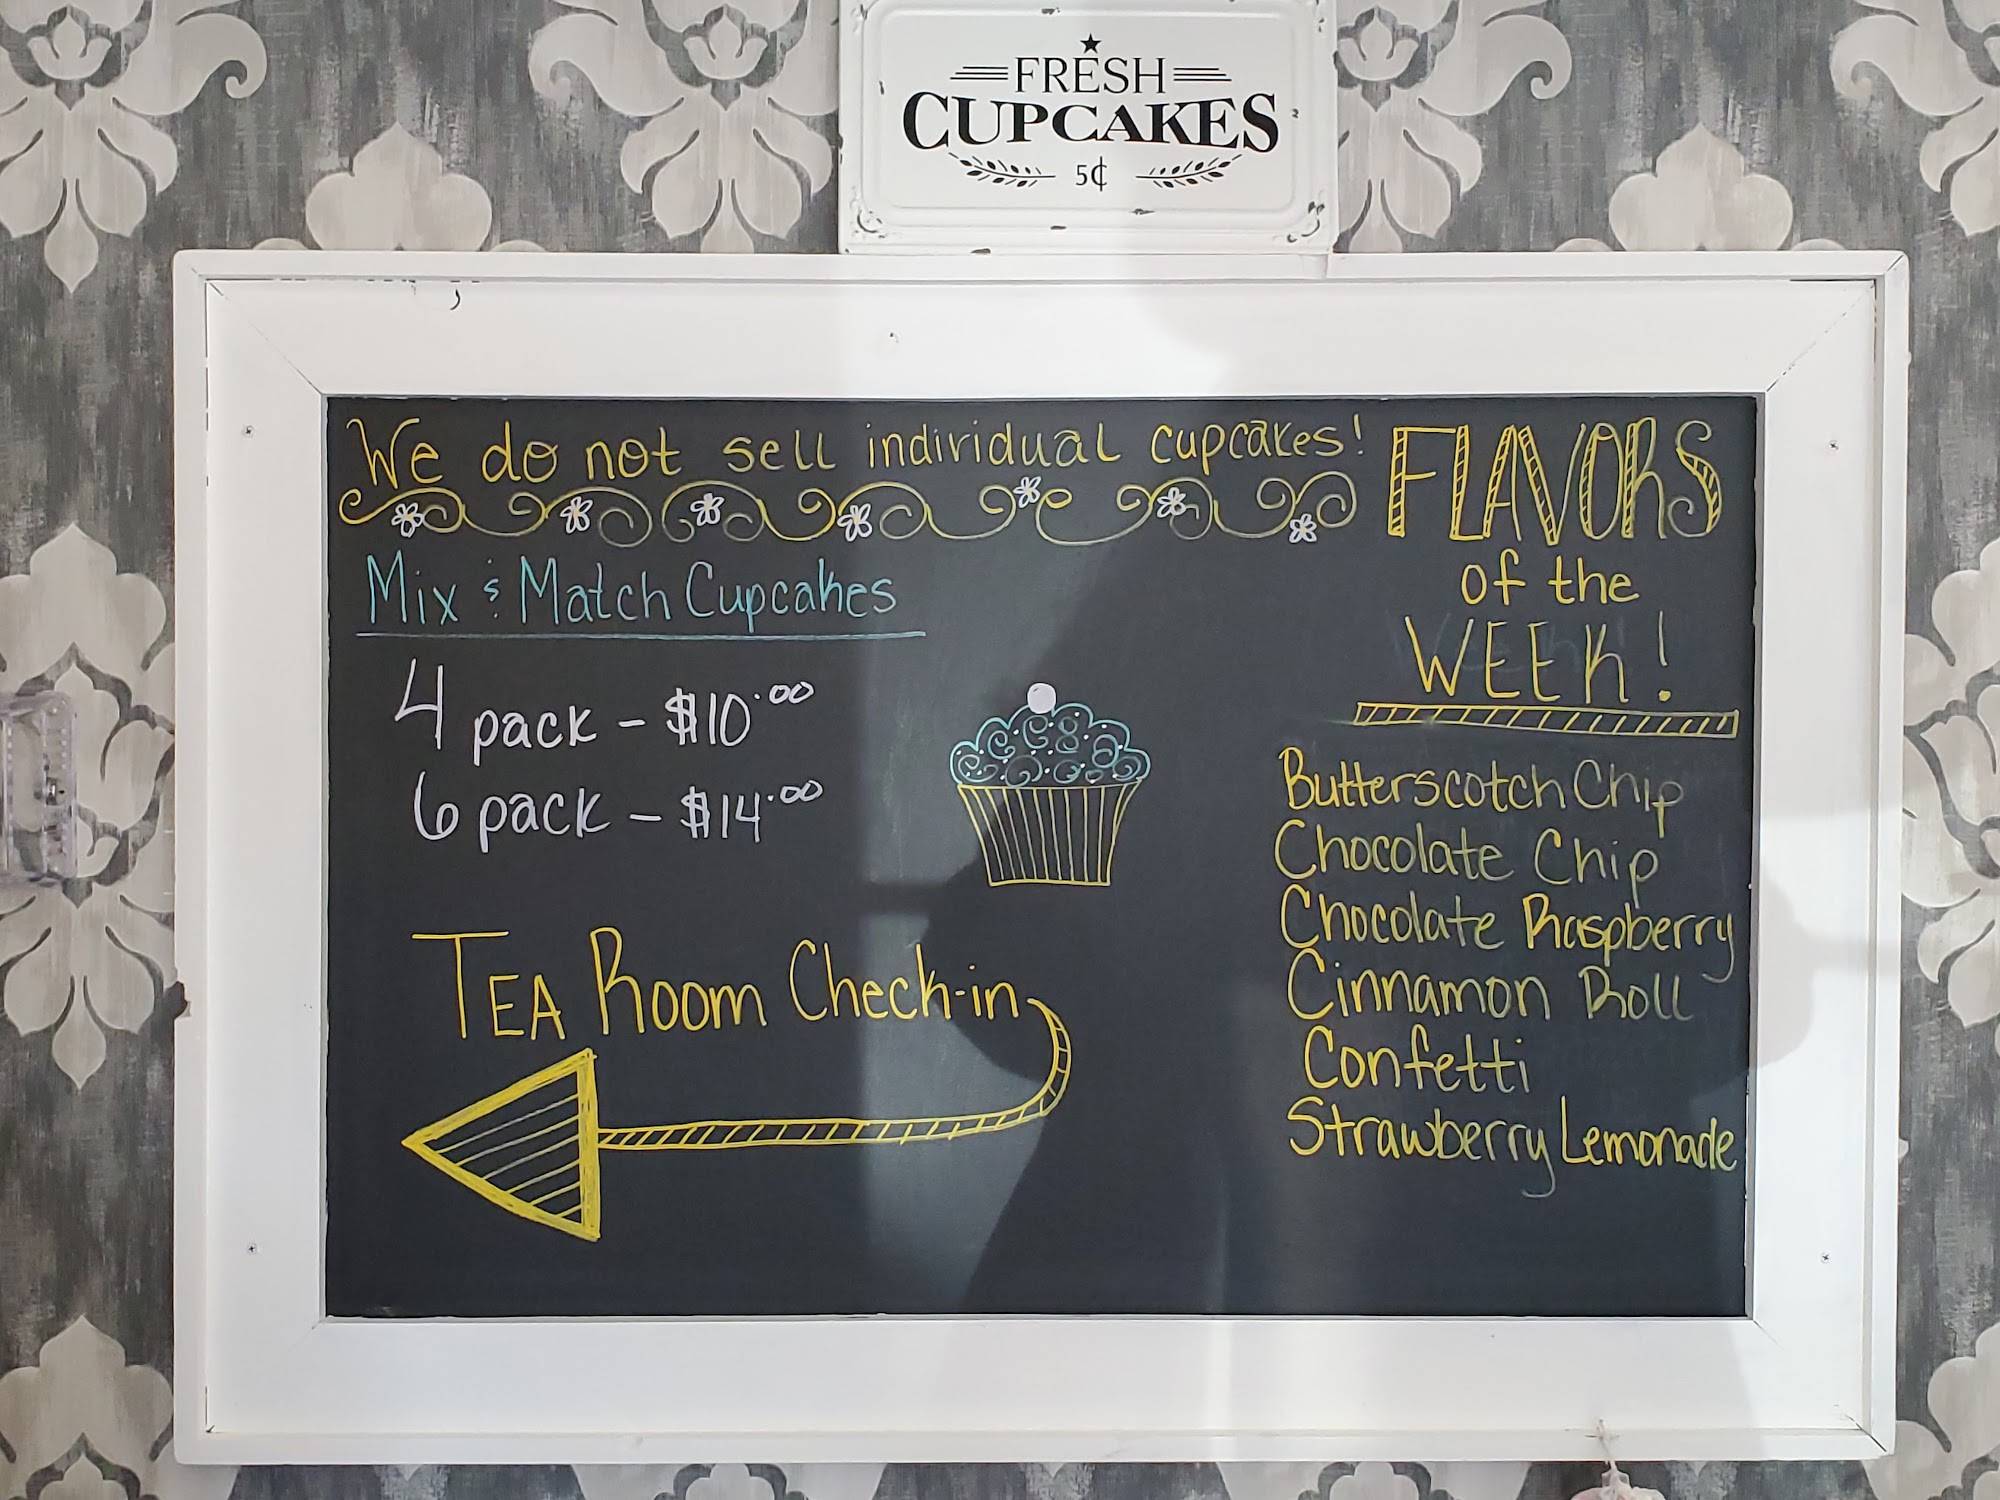 FRESH
CUPCAKES
5¢
We do not sell individual cupcakes!
Mix & Match Cupcakes
4 pack - $10.00
6 pack - $14.00
TEA Room Check-in
FLAVORS
of the
WEEK!
Butterscotch Chip
Chocolate Chip
Chocolate Raspberry
Cinnamon Roll
Confetti
Strawberry Lemonade